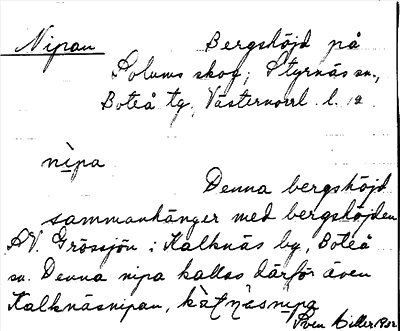 Nipan Bergshöjd på
Solums skog, Styrnäs sn.,
Boteå tg, Västernorrl. l.
nìpa
Denna bergshöjd
sammanhänger med bergshöjden
SV. Grössjön i Kalknäs by, Boteå
sn. Denna nipa kallas därför även
Kalknäsnipan,
Sven